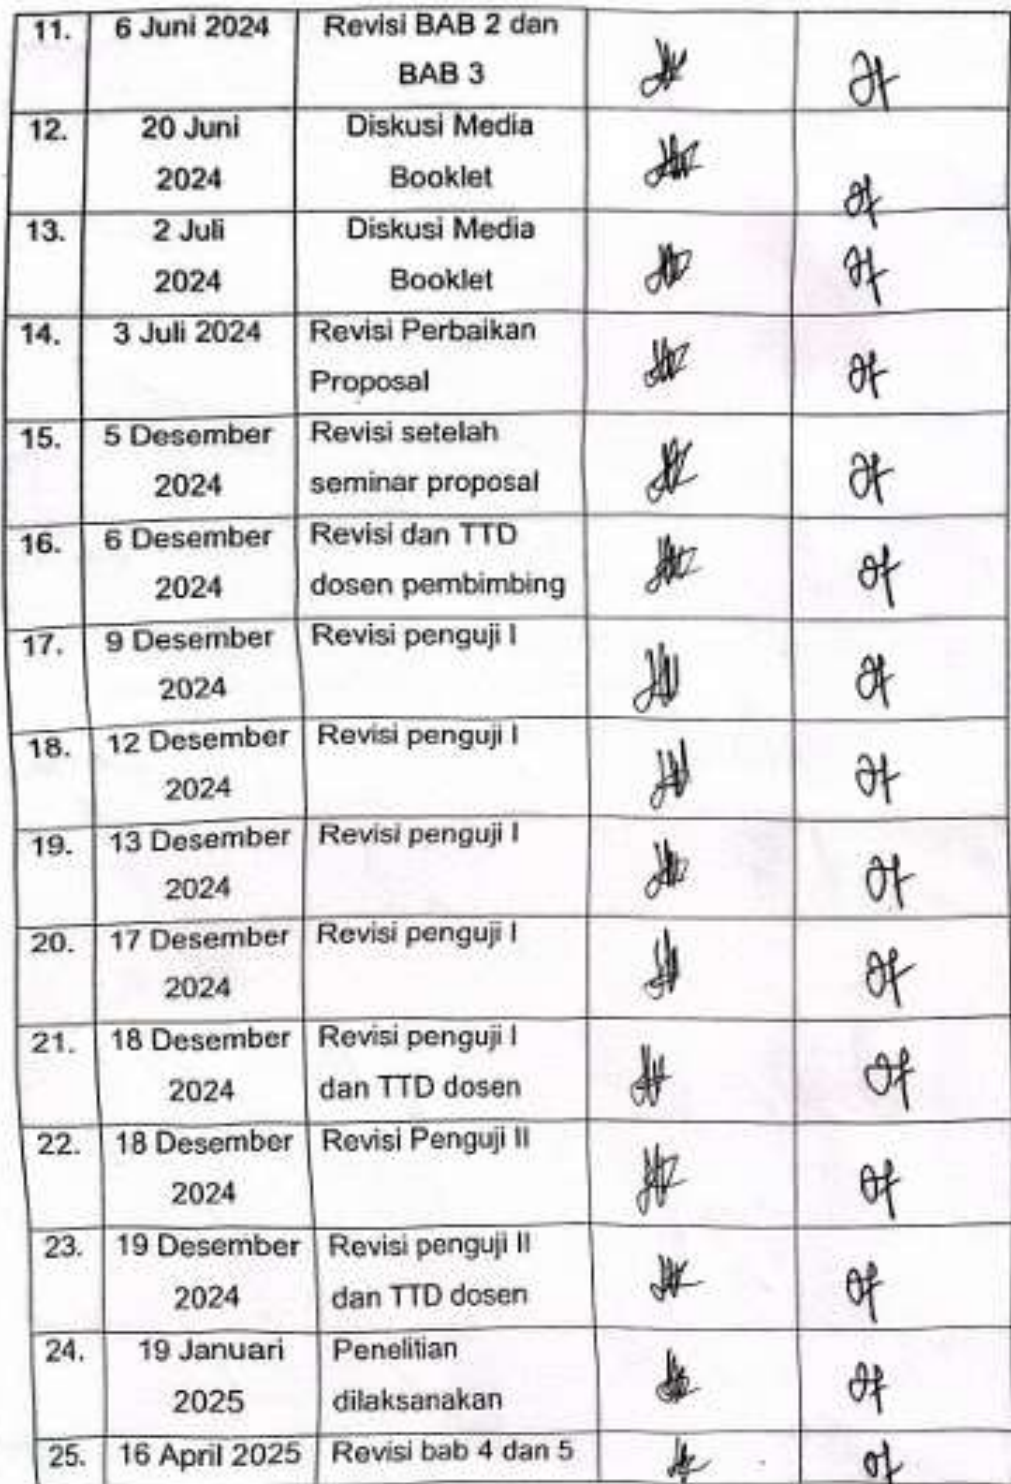 11. 6 Juni 2024 Revisi BAB 2 dan
BAB 3
12. 20 Juni Diskusi Media
2024 Booklet
13. 2 Juli Diskusi Media
2024 Booklet
14. 3 Juli 2024 Revisi Perbaikan
Proposal
15. 5 Desember Revisi setelah
2024 seminar proposal
16. 6 Desember Revisi dan TTD
2024 dosen pembimbing
17. 9 Desember Revisi penguji I
2024
18. 12 Desember Revisi penguji I
2024
19. 13 Desember Revisi penguji I
2024
20. 17 Desember Revisi penguji I
2024
21. 18 Desember Revisi penguji I
2024 dan TTD dosen
22. 18 Desember Revisi Penguji II
2024
23. 19 Desember Revisi penguji II
2024 dan TTD dosen
24. 19 Januari Penelitian
2025 dilaksanakan
25. 16 April 2025 Revisi bab 4 dan 5